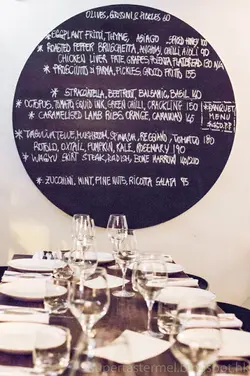 OLIVES, GRISSINI & PICKLES 60
* EGGPLANT FRITTI, THYME, ASIAGO SPICED HONEY 105
* ROASTED PEPPER BRUSCHETTA, ANCHOVY, CHILLI, AIOLI 90
CHICKEN LIVER PATE, GRAPES, PIADINA FLATBREAD 130
* PROSCIUTTO di PARMA, PICKLES, GNOCCO FRITTO 135
STRACCIATELLA, BEETROOT, BALSAMIC, BASIL 140
* OCTOPUS, TOMATO, SQUID INK, GREEN CHILLI, CRACKLING 150
* CARAMELISED LAMB RIBS, ORANGE, CARAWAY 145
* BANQUET
MENU
* TAGLIATELLE, MUSHROOM, SPINACH, REGGIANO, TOMATO 180
ROTOLO, OXTAIL, PUMPKIN, KALE, ROSEMARY 190
* WAGYU SKIRT STEAK, RADISH, BONE MARROW
* ZUCCHINI, MINT, PINE NUTS, RICOTTA SALATA 95